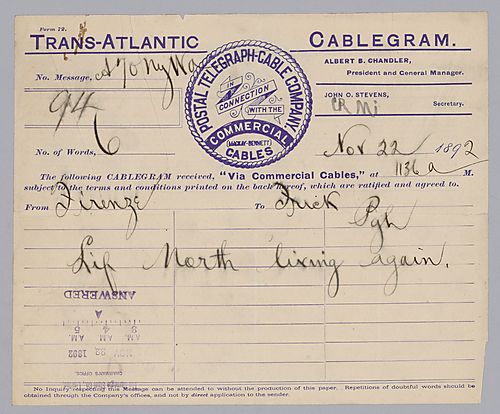 Form 72.
TRANS-ATLANTIC CABLEGRAM.
POSTAL TELEGRAPH-CABLE COMPANY
IN CONNECTION WITH THE
COMMERCIAL
(MACKAY-BENNETT)
CABLES
ALBERT B. CHANDLER,
President and General Manager.
JOHN O. STEVENS,
Secretary.
No. Message,
94
No. of Words, 6
Nov 22 1892
The following CABLEGRAM received, "Via Commercial Cables," at 1136 a M.
subject to the terms and conditions printed on the back hereof, which are ratified and agreed to.
From Firenze To Frick
Pgh
Lif North living again.
ANSWERED
NOV 22 1892
CHAIRMAN'S OFFICE
No Inquiry respecting this Message can be attended to without the production of this paper. Repetitions of doubtful words should be
obtained through the Company's offices, and not by direct application to the sender.